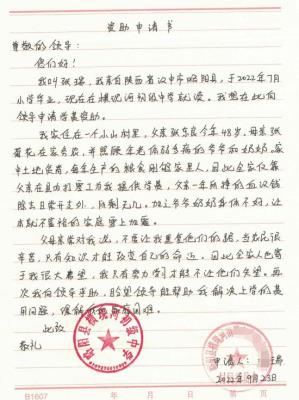 资助申请书
尊敬的领导：
您们好！
我叫张瑞，我来自陕西省汉中市略阳县，于2022年7月
小学毕业，现在在横现河初级中学就读。我想在此向
领导申请学费资助。
我家住在一个小山村里，父亲张东良今年48岁，母亲张
菊花在家务农，并照顾年老体弱多病的爷爷和奶奶。家
中土地贫瘠，每年生产的粮食刚够家里人，因此全家仅靠
父亲在县内打零工为我提供学费，父亲一年所挣的血汗钱
除去日常开支外，所剩无几。加之爷爷奶奶身体不好，让
本就不富裕的家庭雪上加霜。
父母亲常对我说，不要让我重复他们的路，当农民很
辛苦，只有知识才能改变自己的命运。因此全家人也寄
于我很大希望，我只有努力学习才能不让他们失望。再
次我向领导求助，盼望领导能帮助我解决上学的费
用问题，缓解家庭困难。
此致
敬礼
略阳县横现河初级中学
申请人：
2022年9月23日
B1607
年 月 日
第 页